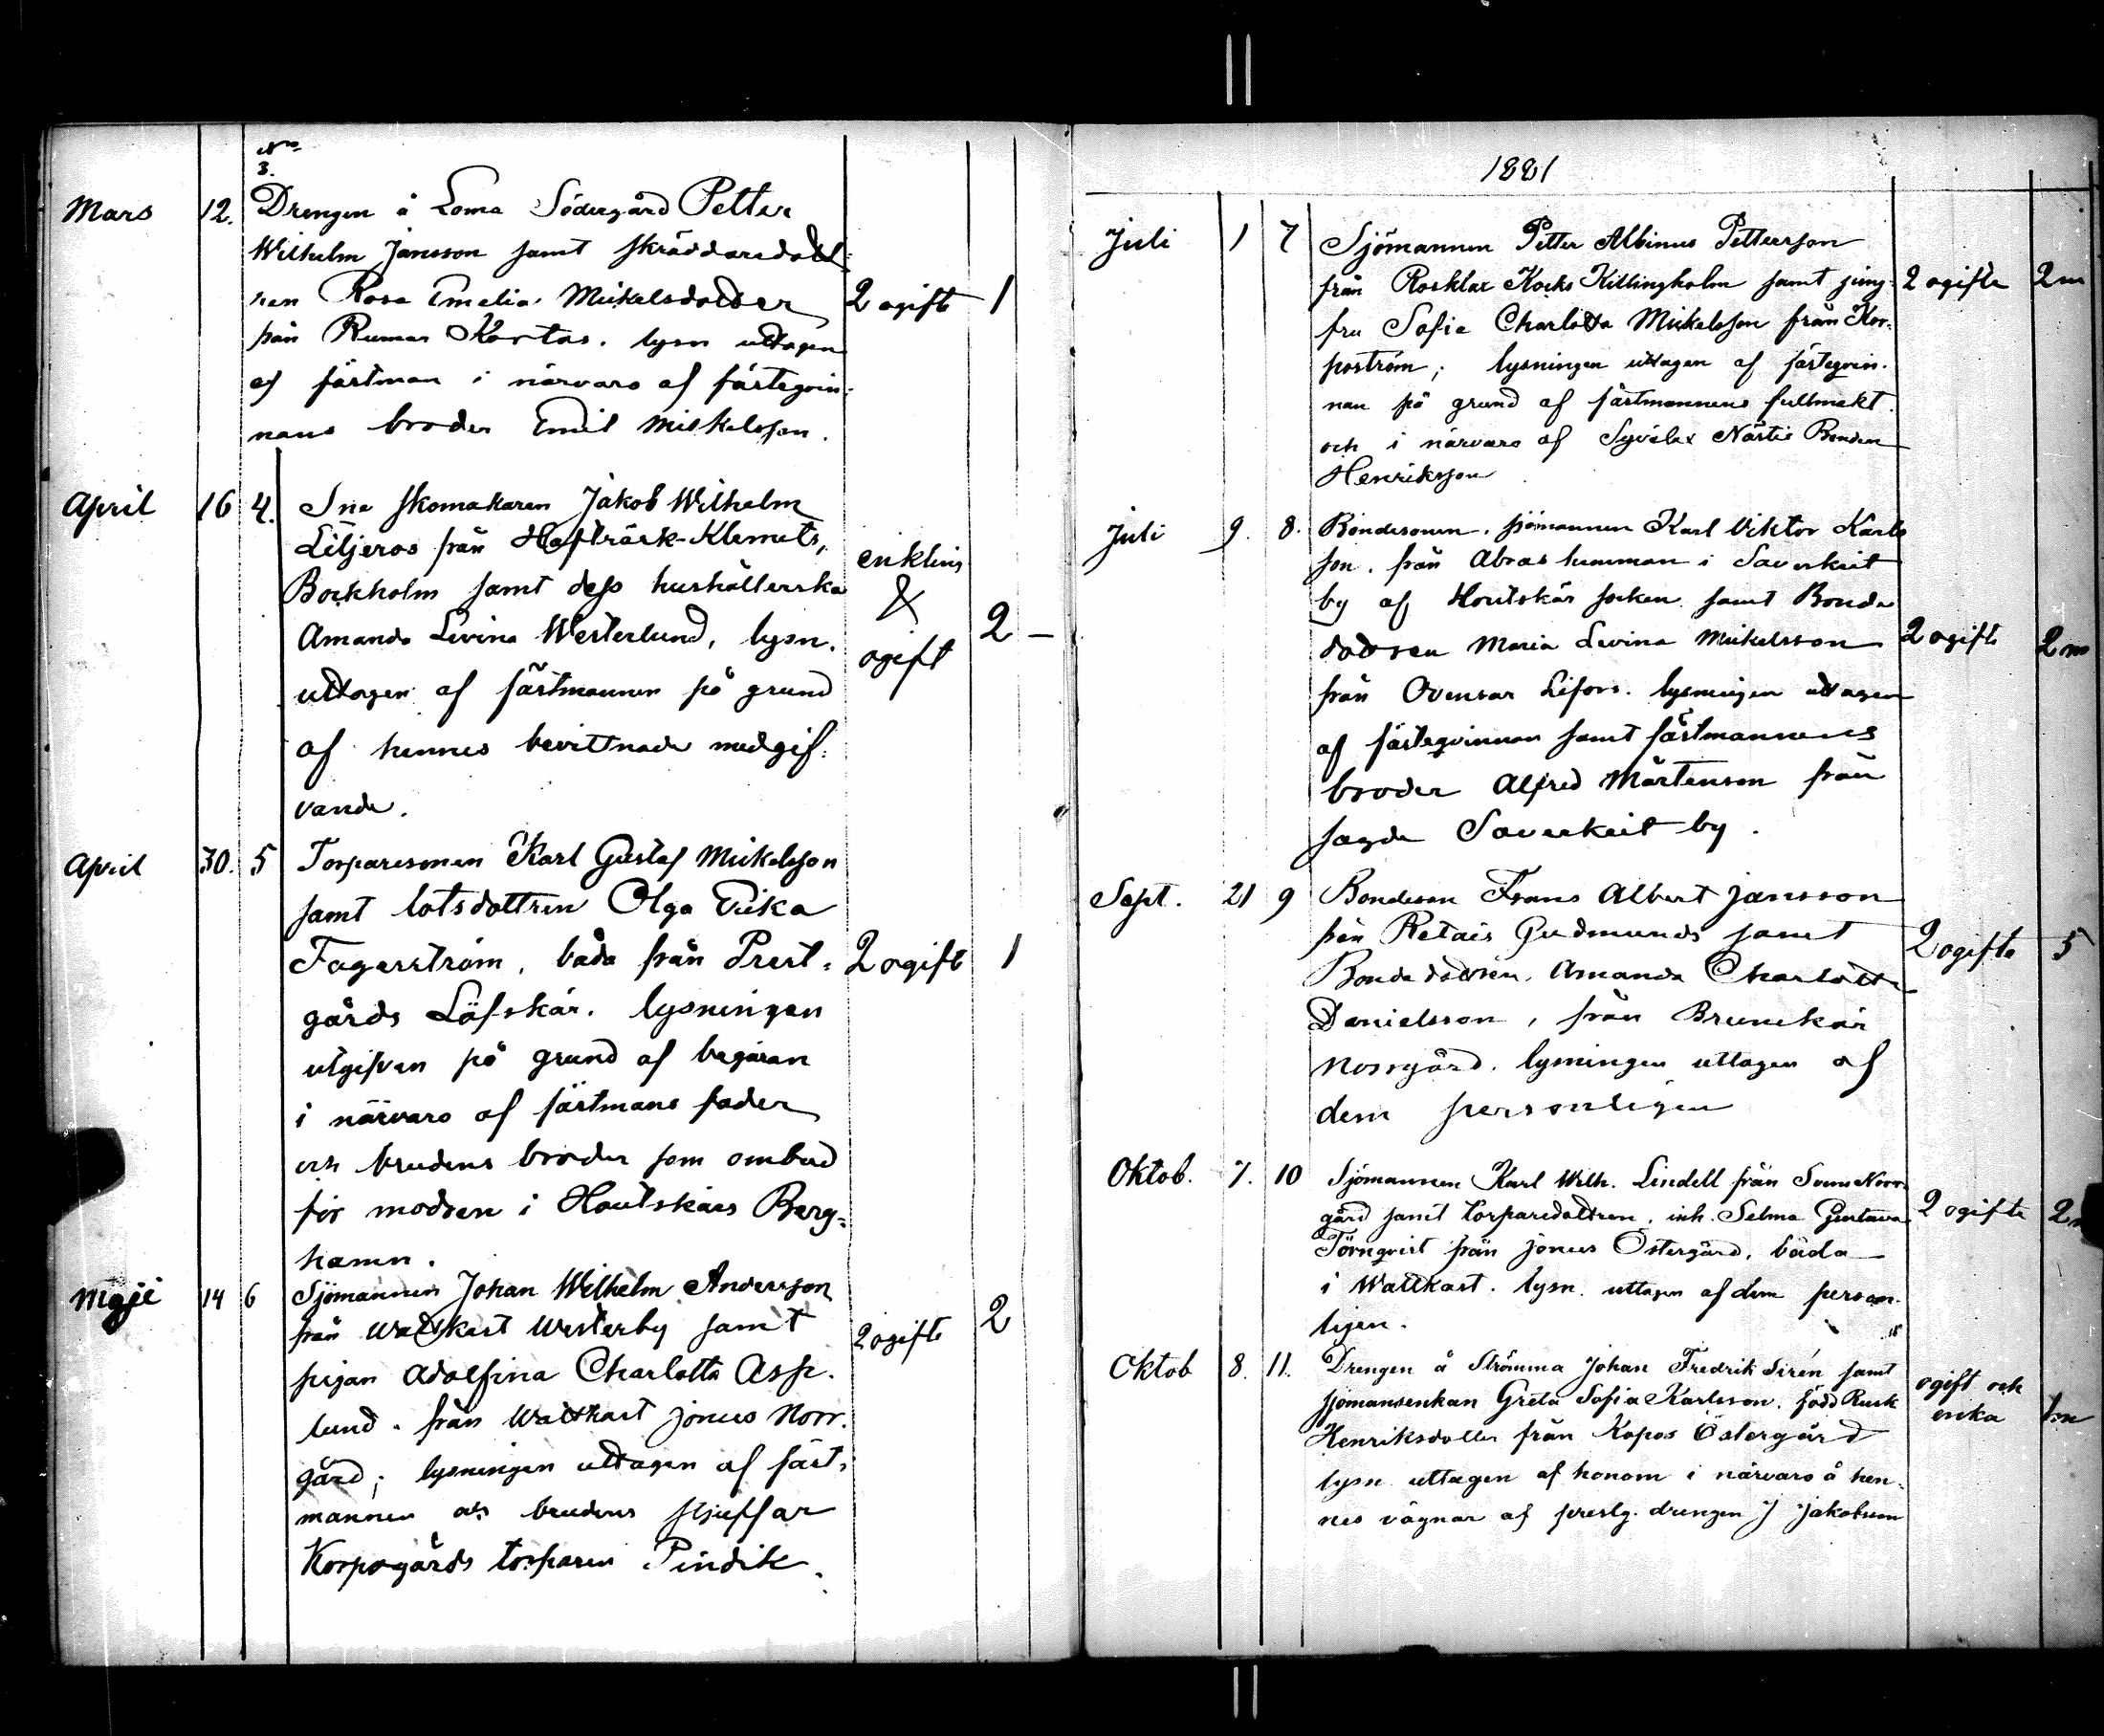 No
3.
Mars 12. Drengen å Loma Södergård Petter
Wilhelm Jansson samt skräddaredott-
ren Rosa Emelia Mickelsdotter 2 ogift 1
från Rumar Kortas. lysn uttagen
af fästman i närvaro af fästeqvin-
nans broder Emil Mickelsson.
April 16 4. Ink skomakaren Jakob Wilhelm
Liljeros från Hafträsk-Klemets,
Bockholm samt dess hushållerska
enkling & ogift 2 –
Amanda Levina Westerlund, lysn.
uttagen af fästmannen på grund
af hennes bevittnade medgif-
vande.
April 30. 5 Torparesonen Karl Gustaf Mickelsson
samt lotsdottren Olga Erika
Fagerström, båda från Prest- 2 ogift 1
gårds Löfskär. lysningen
utgifven på grund af begäran
i närvaro af fästmans fader
och brudens broder som ombud
för modren i Houtskärs Berg-
hamn.
Maji 14 6 Sjömannen Johan Wilhelm Andersson
från Wattkast Westerby samt 2 ogifte 2
pigan Adolfina Charlotta Asp-
lund. från Wattkast Jonus Norr-
gård; lysningen uttagen af fäst-
mannen och brudens stjuffar
Korpogårds torparen Pindik.
1881
Juli 1 7 Sjömannen Petter Albinus Pettersson
från Rosklax Kocks Killingholm samt jung- 2 ogifte 2 m
fru Sofia Charlotta Mickelsson från Kor-
poström; lysningen uttagen af fästeqvin-
nan på grund af fästmannens fullmakt
och i närvaro af Syvälax Närtis Bonden
Henriksson
Juli 9. 8. Bondesonen, sjömannen Karl Viktor Karls
son, från Abras hemman i Saverkeit
by af Houtskär socken samt Bonde
dottren Maria Levina Mickelsson 2 ogifte 2 m
från Ovensor Lifors. lysningen uttagen
af fästeqvinnan samt fästmannens
broder Alfred Mårtenson från
sagde Saverkeit by.
Sept. 21 9 Bondeson Frans Albert Jansson
från Retais Gudmunds samt 2 ogifte 5
Bondedottren Amanda Charlotta
Danielsson, från Brunskär
Norrgård. lysningen uttagen af
dem personligen
Oktob. 7. 10 Sjömannen Karl Wilh. Lindell från Sunn Norr-
gård samt torparedottren, inh. Selma Gustava 2 ogifte 2
Törnqvist från Jonus Östergård, båda
i Wattkast. lysn. uttagen af dem person-
ligen.
Oktob 8. 11. Drengen å Strömma Johan Fredrik Sirén samt
sjömansenkan Greta Sofia Karlsson, född Rusk ogift och enka 1 m
Henriksdotter från Kopos Östergård
lysn uttagen af honom i närvaro å hen-
nes vägnar af prestg. drengen J Jakobsson